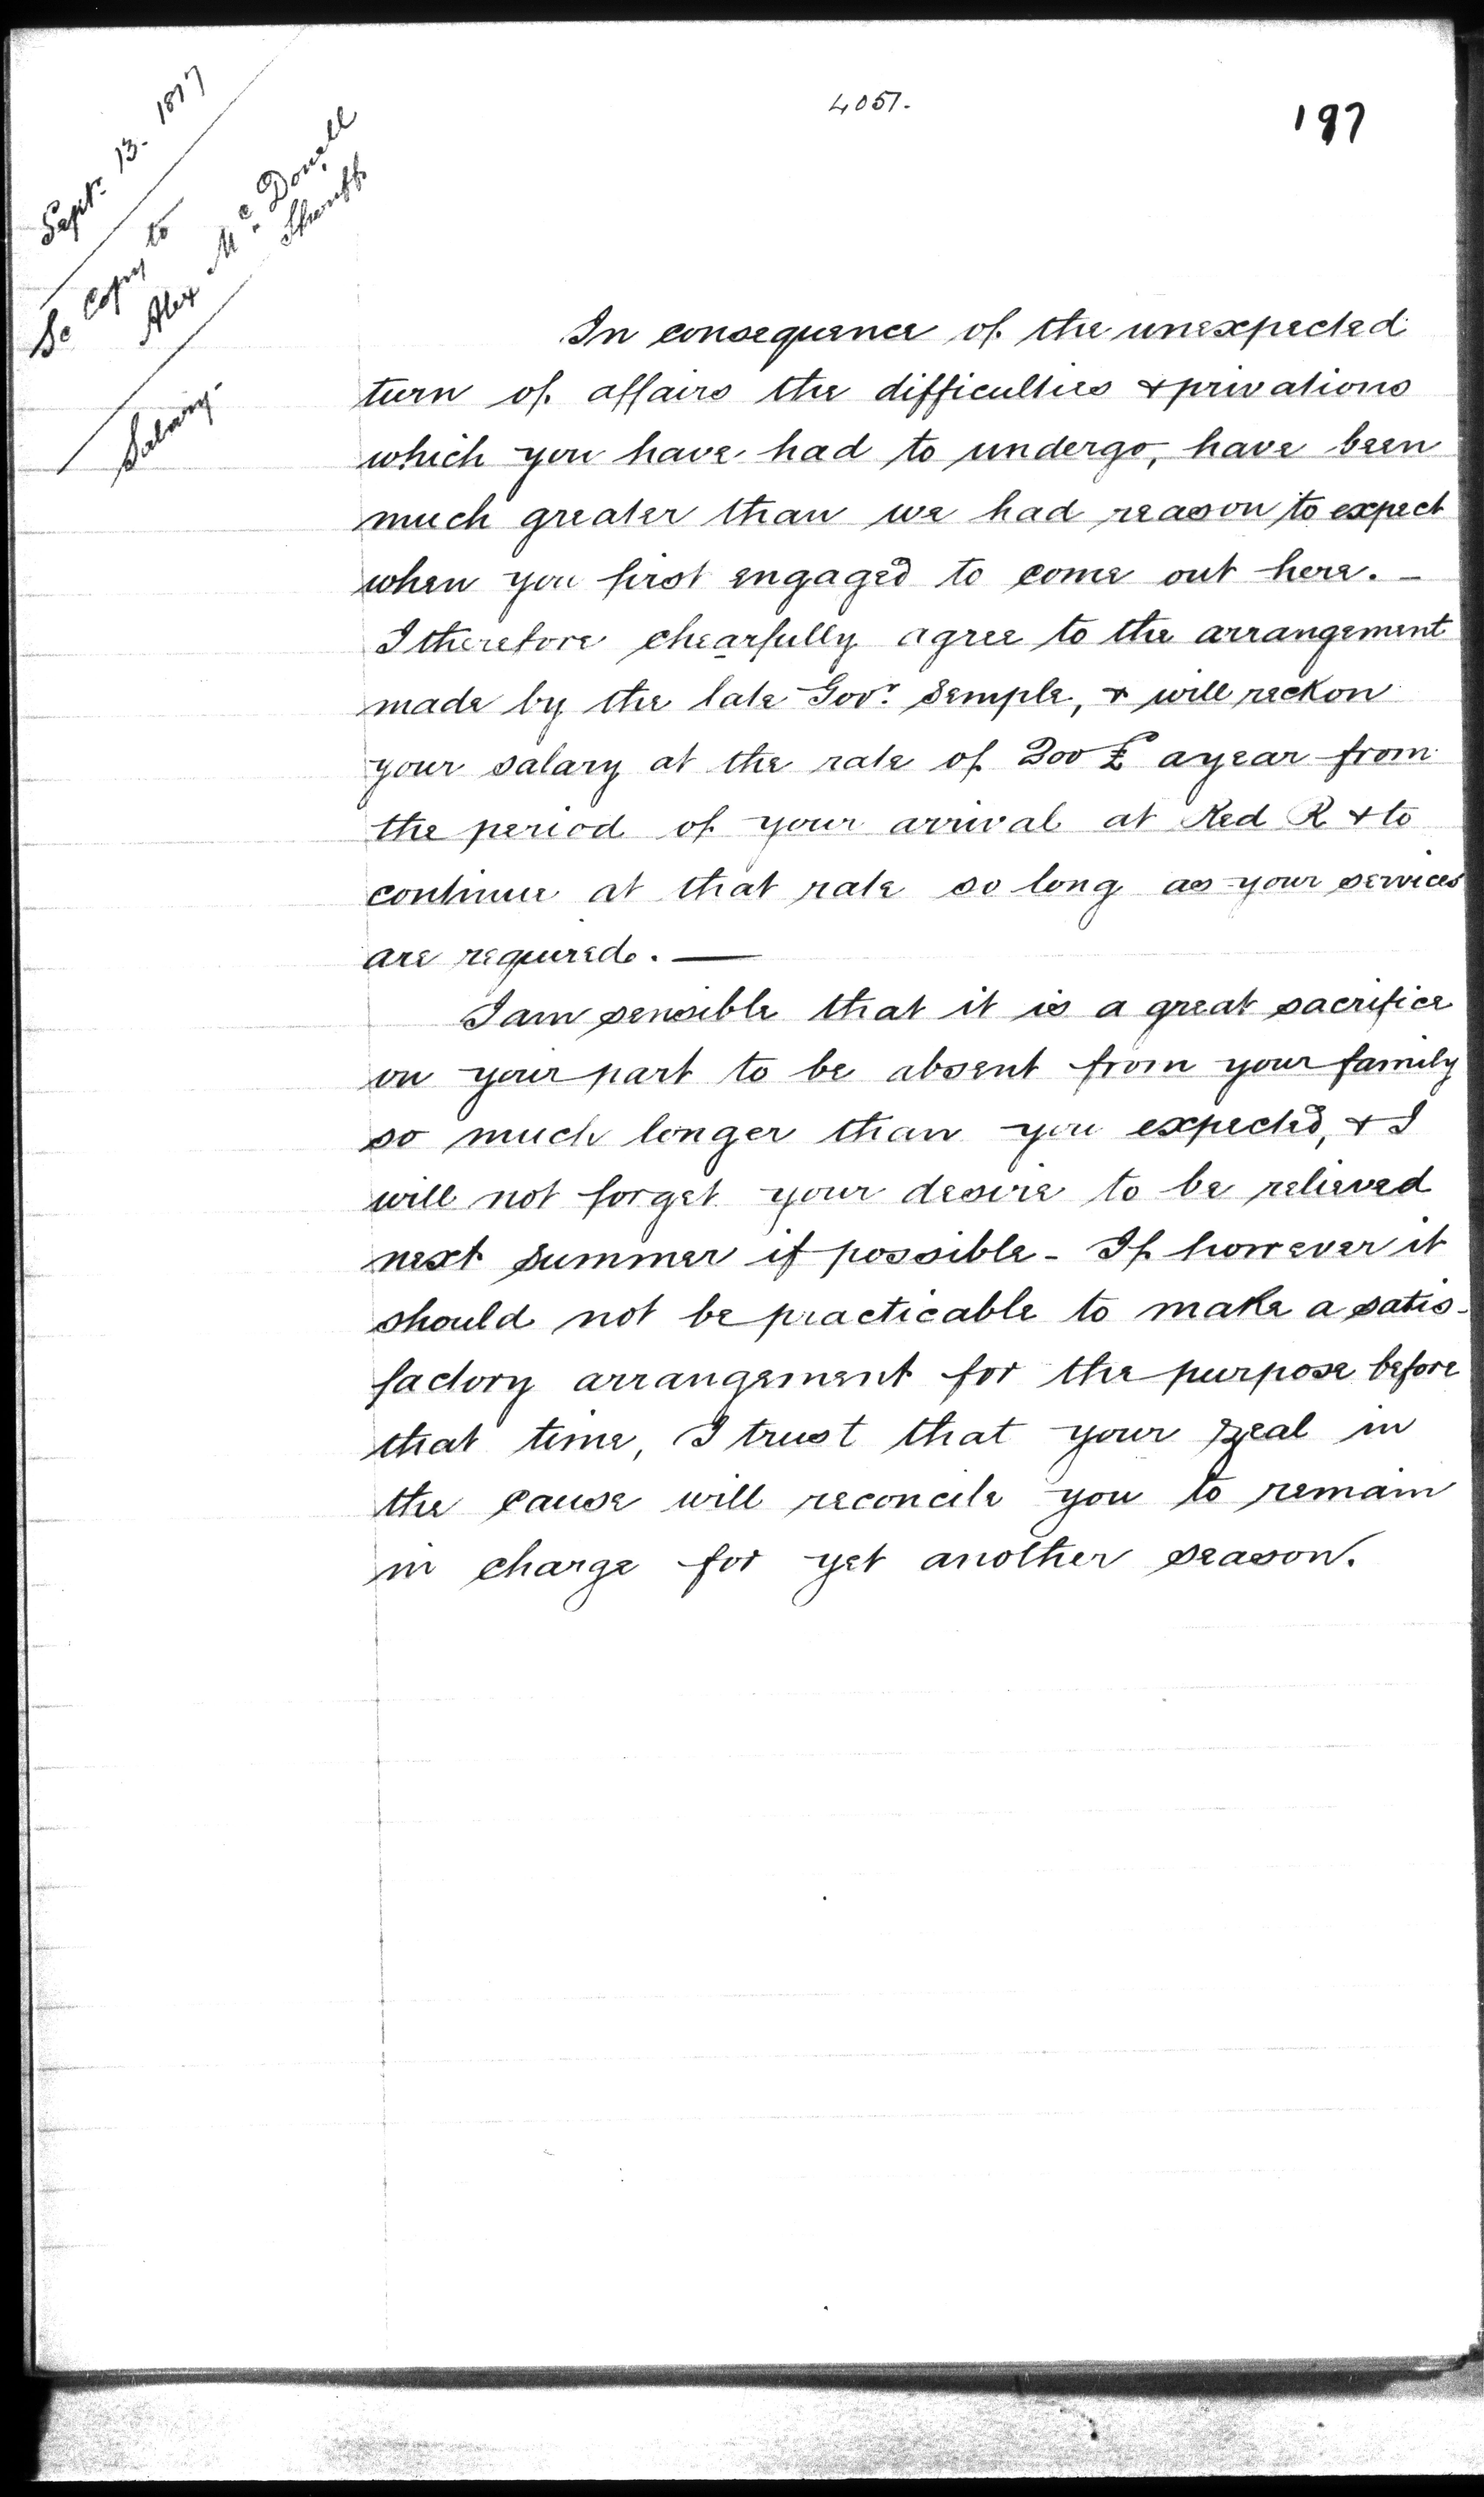 4051.
197
Septr. 13. 1817
Sc Copy to
Alex Mc. Donell
Sheriff.
Salary.
In consequence of the unexpected
turn of affairs the difficulties & privations
which you have had to undergo, have been
much greater than we had reason to expect
when you first engaged to come out here. –
I therefore chearfully agree to the arrangement
made by the late Govr. Semple, & will reckon
your salary at the rate of 200 £ a year from
the period of your arrival at Red R & to
continue at that rate so long as your services
are required. —
I am sensible that it is a great sacrifice
on your part to be absent from your family
so much longer than you expected, & I
will not forget your desire to be relieved
next summer if possible – If however it
should not be practicable to make a satis-
factory arrangement for the purpose before
that time, I trust that your zeal in
the cause will reconcile you to remain
in charge for yet another season.